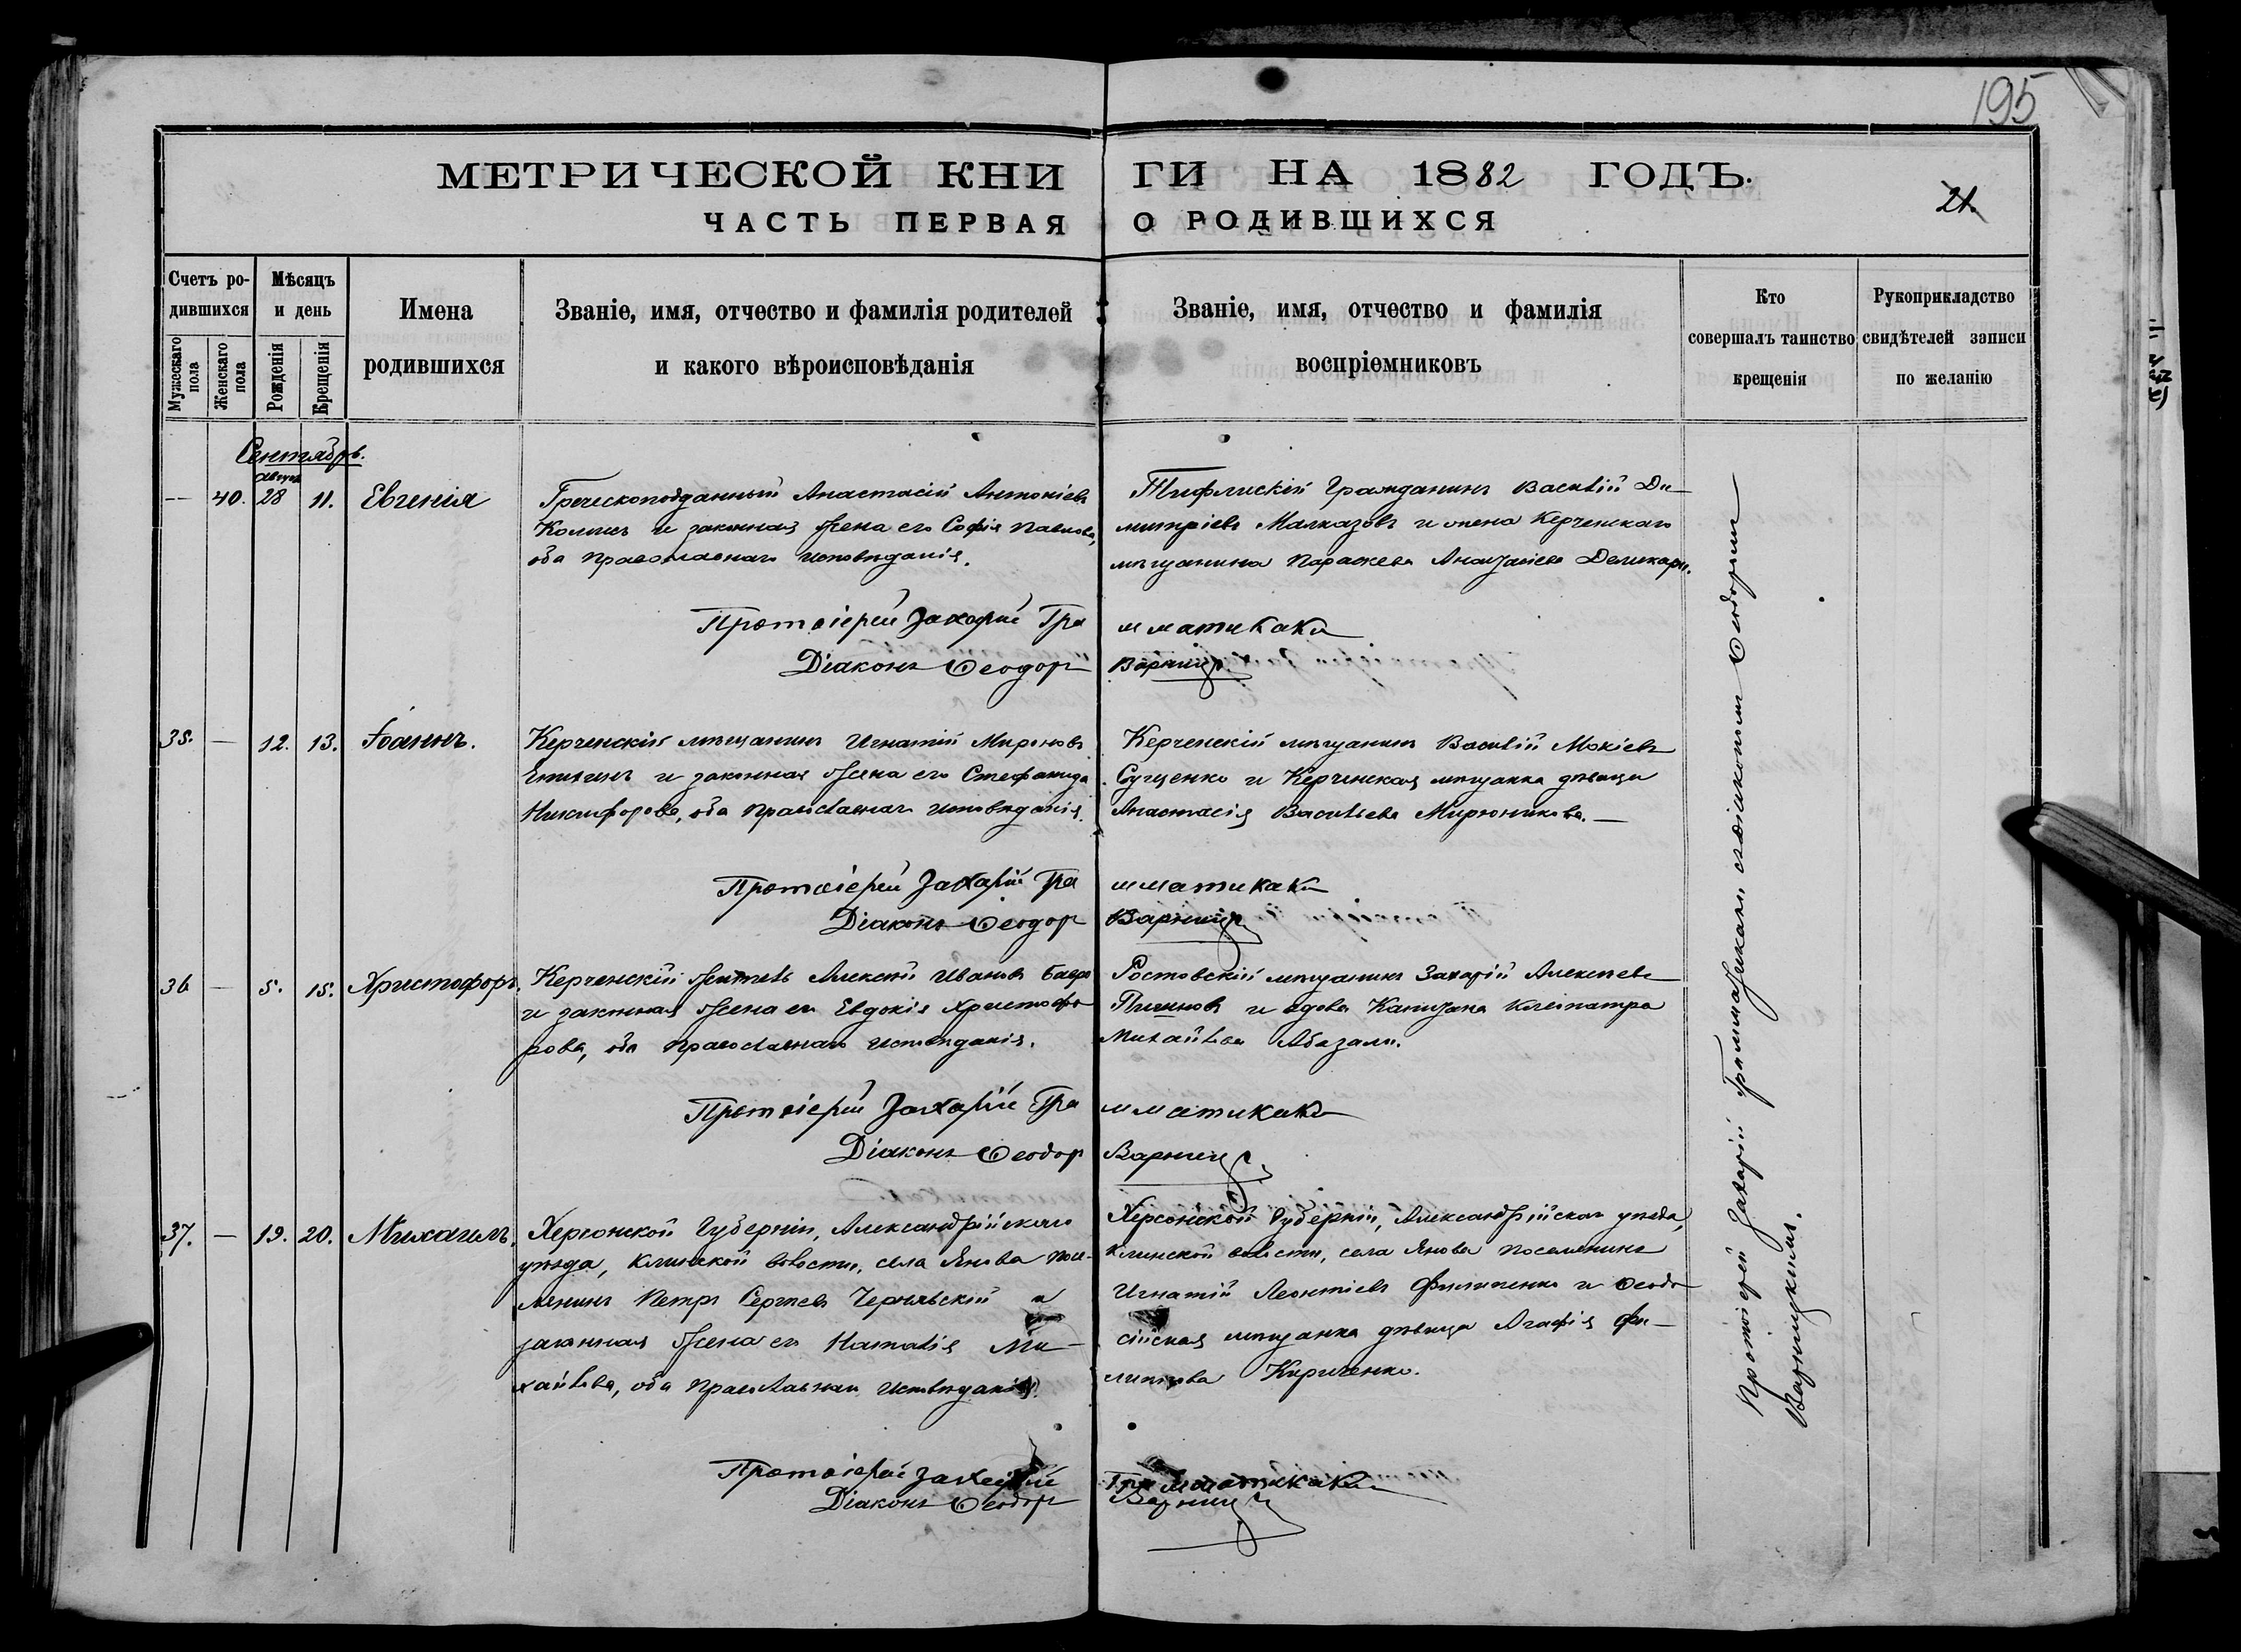 195
МЕТРИЧЕСКОЙ КНИГИ НА 1882 ГОДЪ.
21.
ЧАСТЬ ПЕРВАЯ О РОДИВШИХСЯ
Счетъ ро-
дившихся
Мужескаго
пола
Женскаго
пола
Мѣсяцъ
и день
Рожденія
Крещенія
Имена
родившихся
Званіе, имя, отчество и фамилія родителей
и какого вѣроисповѣданія
Званіе, имя, отчество и фамилія
воспріемниковъ
Кто
совершалъ таинство
крещенія
Рукоприкладство
свидѣтелей записи
по желанію
Сентябрь.
Август
— 40. 28 11. Евгенія
Греческоподданный Анастасій Антоніевъ
и законная жена его Софія Павлова,
оба православнаго исповѣданія.
Тифлискій Гражданинъ Василій Ди-
митріевъ Малхазовъ и жена Керченскаго
мѣщанина Параскева Анастасіева
Протоіерей Захарій Грамматикаки
Діаконъ Ѳеодоръ Варницкій
35. — 12. 13. Іоаннъ.
Керченскій мѣщанинъ Игнатій Мироновъ
и законная жена его Стефанида
Никифорова, оба православнаго исповѣданія.
Керченскій мѣщанинъ Василій Мокіевъ
Сущенко и Керченская мѣщанка дѣвица
Анастасія Васильева Мирюникова. —
Протоіерей Захарій Грамматикаки
Діаконъ Ѳеодоръ Варницкій
36 — 5. 15. Христофоръ.
Керченскій житель Алексѣй Ивановъ
и законная жена его Евдокія Христофо
рова, оба православнаго исповѣданія.
Ростовскій мѣщанинъ Захарій Алексѣевъ
и вдова Капитана Клеопатра
Михайлова Абазали.
Протоіерей Захарій Грамматикаки
Діаконъ Ѳеодоръ Варницкій
37. — 19. 20. Михаилъ.
Херсонской Губерніи, Александрійскаго
уѣзда, Клинской волости, села Янова посе-
лянинъ Петръ Сергѣевъ Чернявскій и
законная жена его Наталія Ми-
хайлова, оба православнаго исповѣданія.
Херсонской Губерніи, Александрійскаго уѣзда,
Клинской волости, села Янова поселянинъ
Игнатій Леонтіевъ Филипенко и Ѳеодо
сійская мѣщанка дѣвица Агафія Фи-
липпова Кириченко.
Протоіерей Захарій Грамматикаки
Діаконъ Ѳеодоръ Варницкій
Протоіерей Захарій Грамматикаки съ діакономъ Ѳеодоромъ
Варницкимъ.